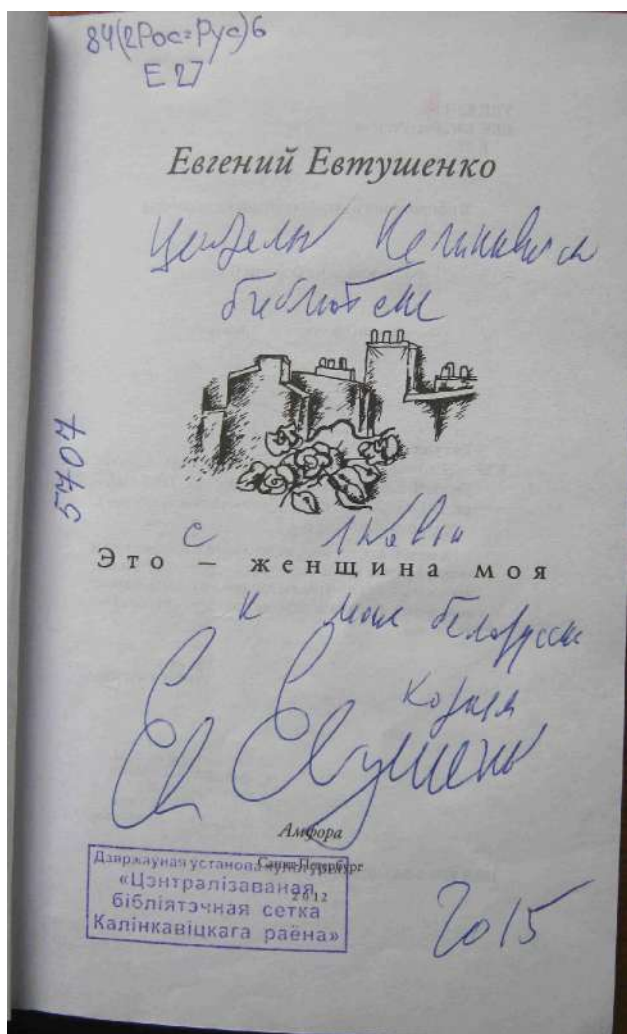 84(2Рос=Рус)6
Е 27
Евгений Евтушенко
библиотеке
5707
с любовью
Это – женщина моя
к моим белорусским
корням
Ев Евтушенко
Амфора
Санкт-Петербург
2012
Дзяржаўная установа культуры
«Цэнтралізаваная
бібліятэчная сетка
Калінкавіцкага раёна»
2015